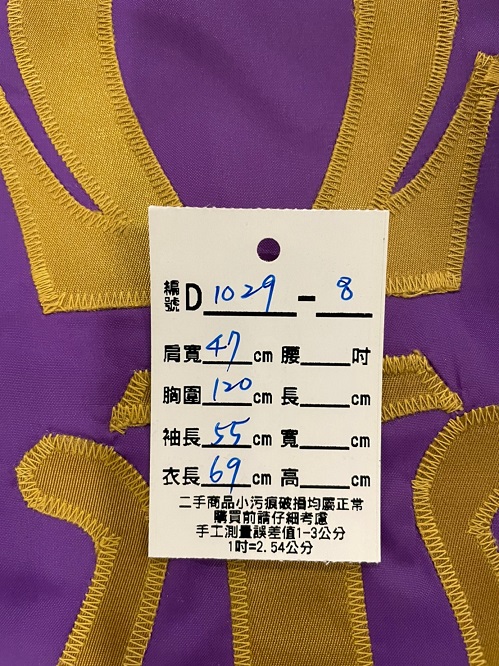 編號D 1029 - 8
肩寬 47 cm 腰____吋
胸圍 120 cm 長____cm
袖長 55 cm 寬____cm
衣長 69 cm 高____cm
二手商品小污痕破損均屬正常
購買前請仔細考慮
手工測量誤差值1-3公分
1吋=2.54公分